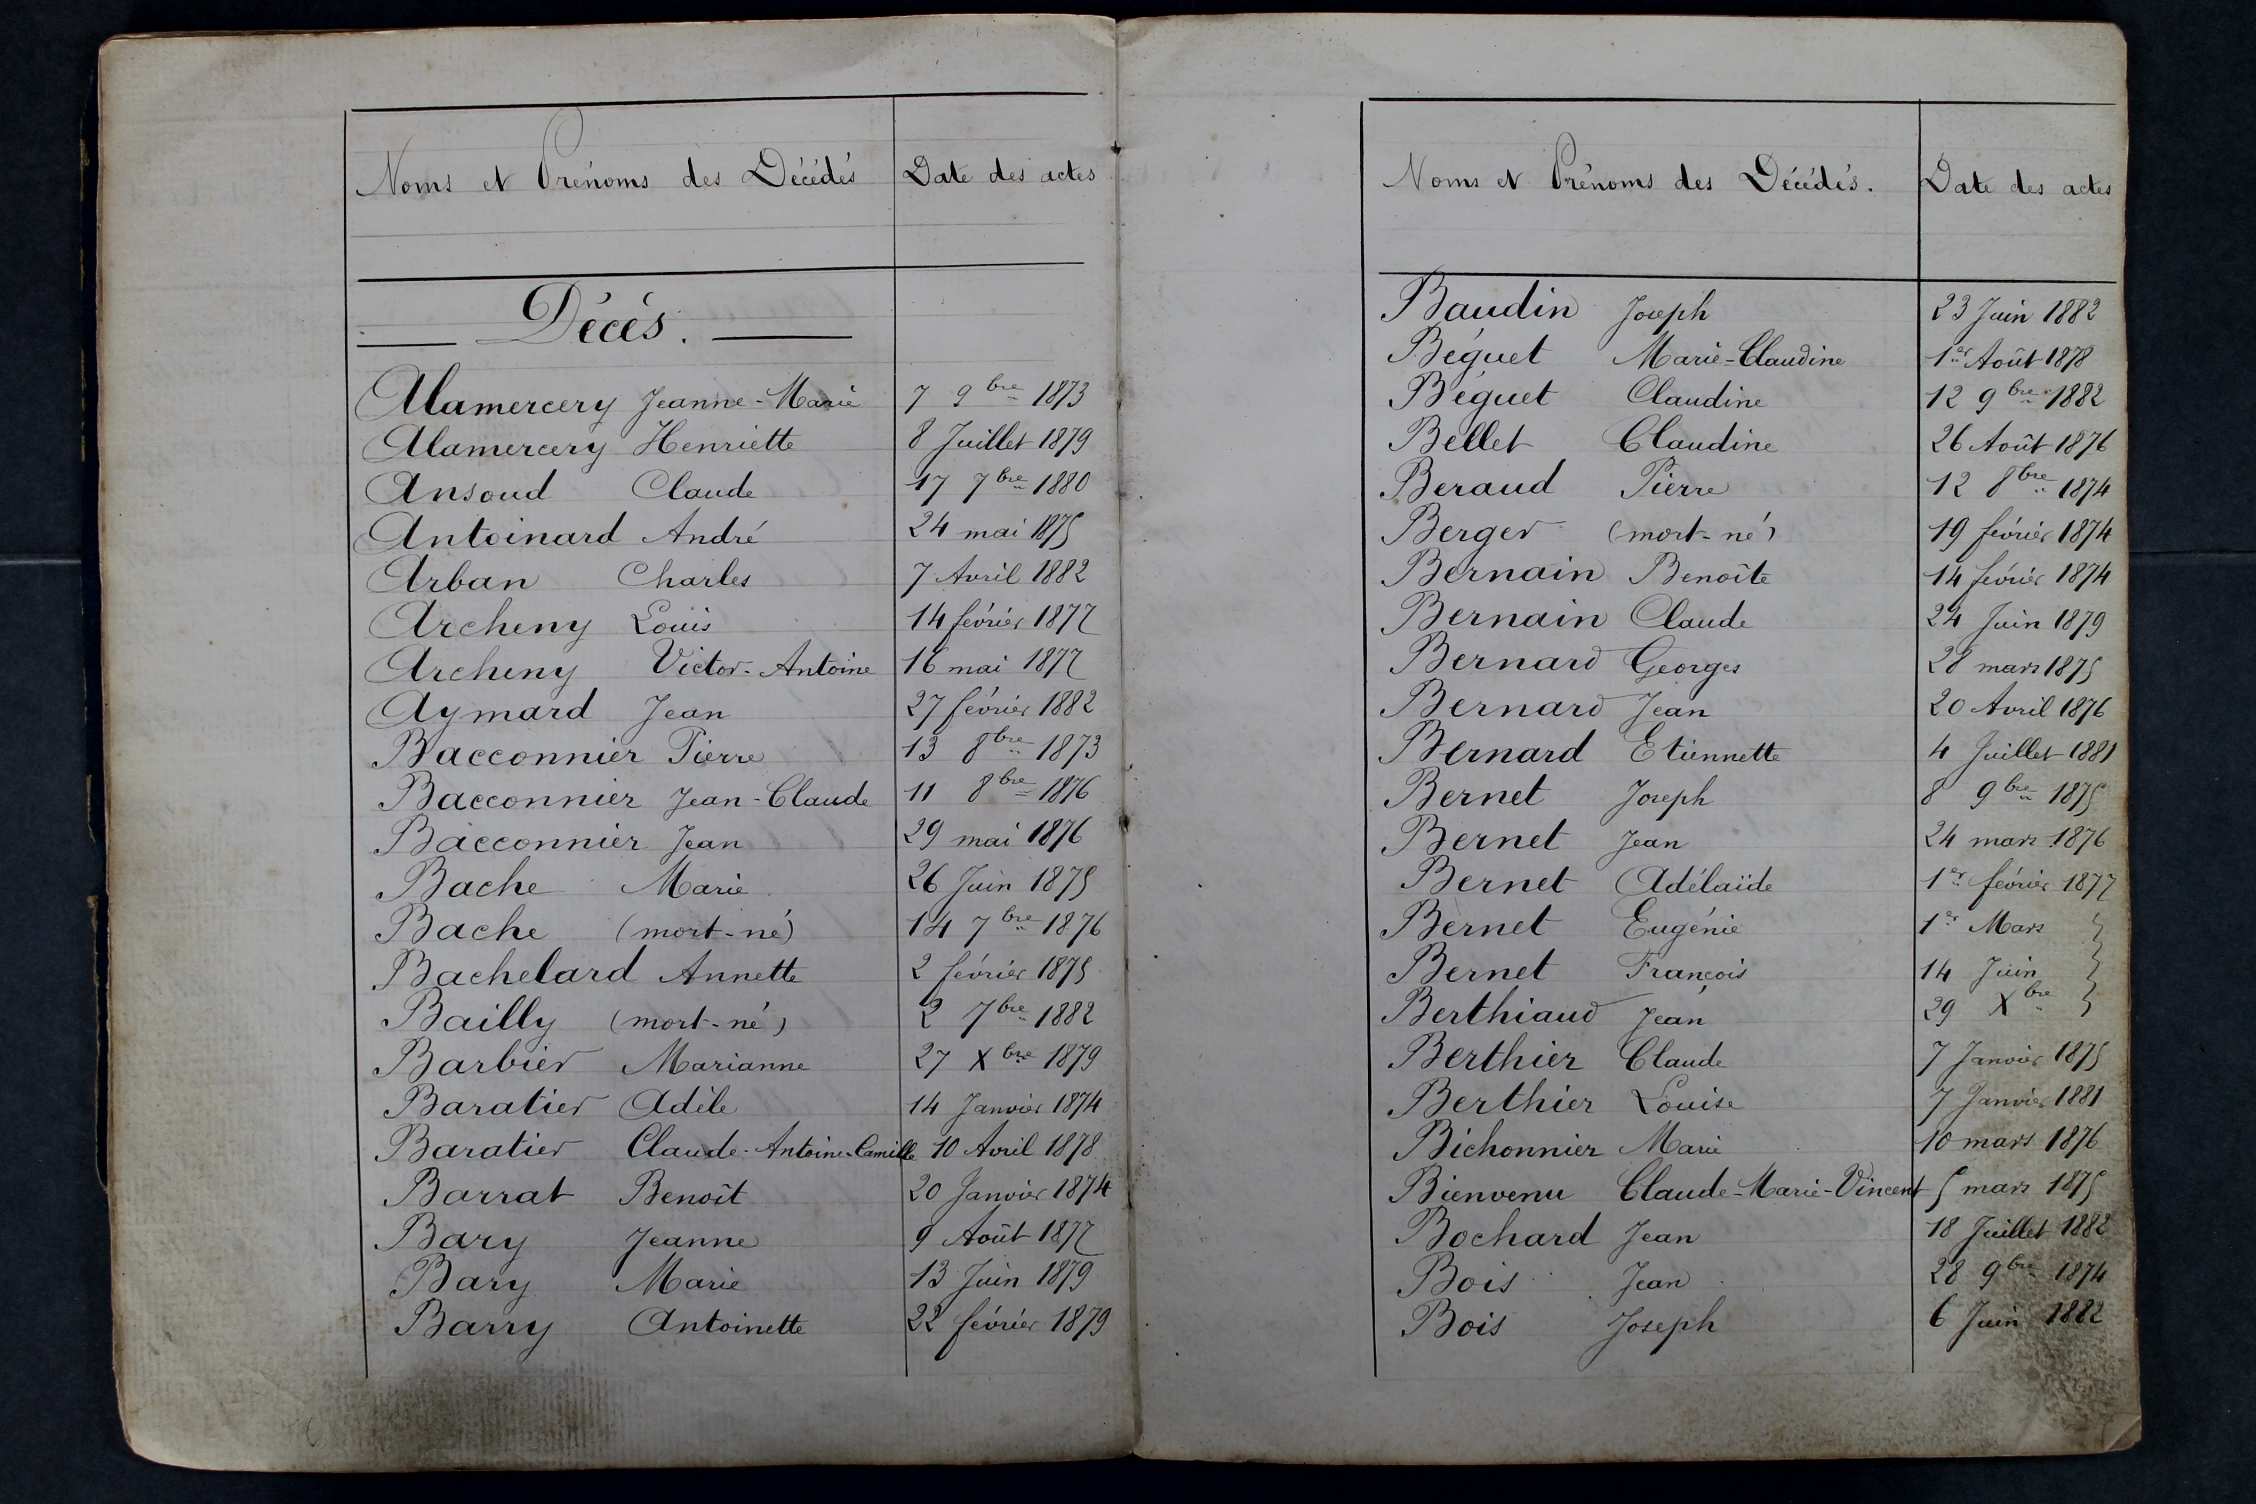 Noms et Prénoms des Décédés Date des actes
Décés.
Alamercery Jeanne-Marie 7 9bre 1873
Alamercery Henriette 8 Juillet 1879
Ansoud Claude 17 7bre 1880
Antoinard André 24 mai 1875
Arban Charles 7 Avril 1882
Archeny Louis 14 février 1877
Archeny Victor-Antoine 16 mai 1877
Aymard Jean 27 février 1882
Bacconnier Pierre 13 8bre 1873
Bacconnier Jean-Claude 11 8bre 1876
Bacconnier Jean 29 mai 1876
Bache Marie 26 Juin 1875
Bache (mort-né) 14 7bre 1876
Bachelard Annette 2 février 1875
Bailly (mort-né) 2 7bre 1882
Barbier Marianne 27 Xbre 1879
Baratier Adèle 14 Janvier 1874
Baratier Claude-Antoine-Camille 10 Avril 1878
Barrat Benoît 20 Janvier 1874
Bary Jeanne 9 Août 1877
Bary Marie 13 Juin 1879
Barry Antoinette 22 février 1879
Noms et Prénoms des Décédés. Date des actes
Baudin Joseph 23 Juin 1882
Béguet Marie-Claudine 1er Août 1878
Béguet Claudine 12 9bre 1882
Bellet Claudine 26 Août 1876
Beraud Pierre 12 8bre 1874
Berger (mort-né) 19 février 1874
Bernain Benoîte 14 février 1874
Bernain Claude 24 Juin 1879
Bernard Georges 28 mars 1875
Bernard Jean 20 Avril 1876
Bernard Etiennette 4 Juillet 1881
Bernet Joseph 8 9bre 1875
Bernet Jean 24 mars 1876
Bernet Adélaïde 1er février 1877
Bernet Eugénie 1er Mars
Bernet François 14 Juin
Berthiaud Jean 29 Xbre
Berthier Claude 7 Janvier 1875
Berthier Louise 7 Janvier 1881
Bichonnier Marie 10 mars 1876
Bienvenu Claude-Marie-Vincent 5 mars 1875
Bochard Jean 18 Juillet 1882
Bois Jean 28 9bre 1874
Bois Joseph 6 Juin 1882